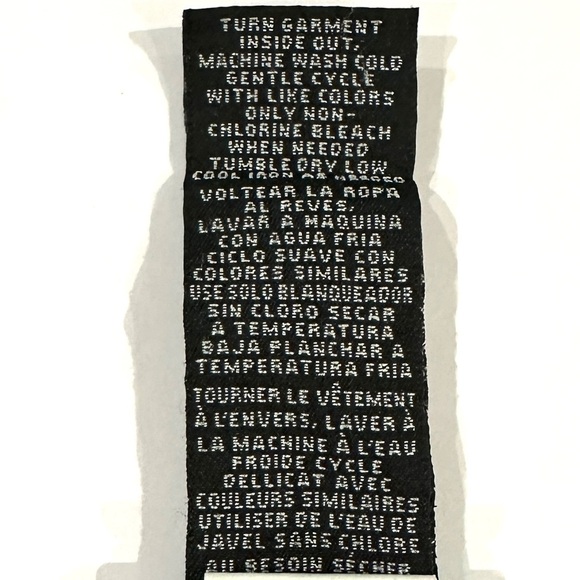 TURN GARMENT
INSIDE OUT,
MACHINE WASH COLD
GENTLE CYCLE
WITH LIKE COLORS
ONLY NON-
CHLORINE BLEACH
WHEN NEEDED
TUMBLE DRY LOW
COOL IRON AS NEEDED
VOLTEAR LA ROPA
AL REVES,
LAVAR A MAQUINA
CON AGUA FRIA
CICLO SUAVE CON
COLORES SIMILARES
USE SOLO BLANQUEADOR
SIN CLORO SECAR
A TEMPERATURA
BAJA PLANCHAR A
TEMPERATURA FRIA
TOURNER LE VÊTEMENT
À L'ENVERS, LAVER À
LA MACHINE À L'EAU
FROIDE CYCLE
DELLICAT AVEC
COULEURS SIMILAIRES
UTILISER DE L'EAU DE
JAVEL SANS CHLORE
AU BESOIN SECHER